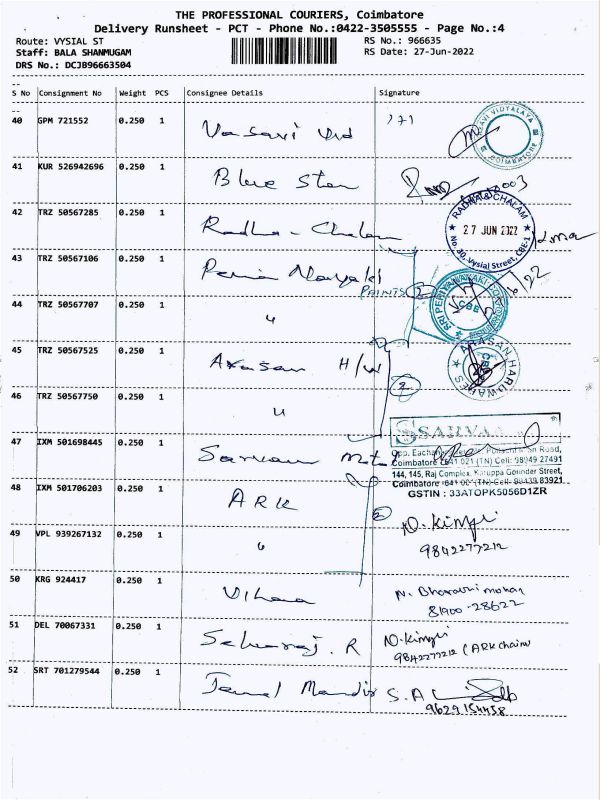 THE PROFESSIONAL COURIERS, Coimbatore
Delivery Runsheet - PCT - Phone No.:0422-3505555 - Page No.:4
Route: VYSIAL ST
RS No.: 966635
Staff: BALA SHANMUGAM
RS Date: 27-Jun-2022
DRS No.: DCJB96663504
S No Consignment No Weight PCS Consignee Details Signature
40 GPM 721552 0.250 1 Vasavi Vid
VASAVI VIDYALAYA COIMBATORE
41 KUR 526942696 0.250 1 Blue Star
42 TRZ 50567285 0.250 1 Radha - Chalam
RADHA & CHALAM
27 JUN 2022
No. 30, Vysial Street, CBE-1
43 TRZ 50567106 0.250 1 Peria Nayaki
PAINTS 2
SRI PERIYANAYAKI CBE
44 TRZ 50567707 0.250 1 "
45 TRZ 50567525 0.250 1 Arasan H/W
2
ARASAN HARDWARES CBE
46 TRZ 50567750 0.250 1 "
47 IXM 501698445 0.250 1 Sarvam Mtl
SARVA
Coimbatore - 641 021 (TN) Cell: 98949 27491
144, 145, Raj Complex, Karuppa Gounder Street,
Coimbatore - 641 001 (TN) Cell: 98439 83921
GSTIN : 33ATOPK5056D1ZR
48 IXM 501706203 0.250 1 ARK
2
49 VPL 939267132 0.250 1 "
9842277212
50 KRG 924417 0.250 1
N. Bharathi mohan
81900-28622
51 DEL 70067331 0.250 1 Selvaraj. R
9842277212 (ARK chains
52 SRT 701279544 0.250 1 Jamal Mandir S.A
9629154458